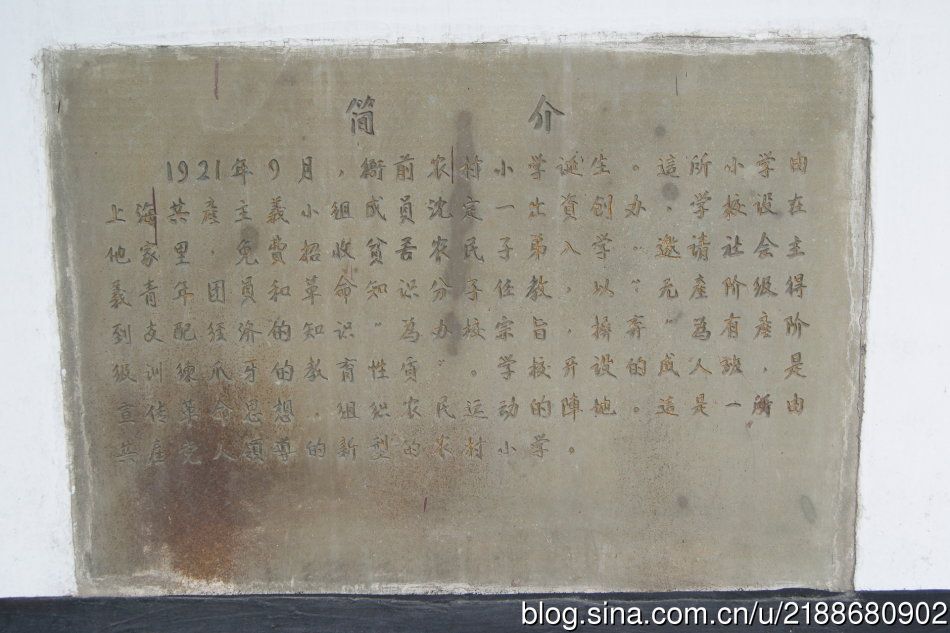 简 介
1921年9月，衙前农村小学诞生。這所小学由
上海共產主義小組成員沈定一出資创办，学校设在
他家里，免費招收贫苦农民子弟入学。邀请社会主
義青年团員和革命知识分子任教，以“无產阶级得
到支配经济的知识”為办校宗旨，摈弃“為有產阶
级训練爪牙的教育性质”。学校开设的成人班，是
宣传革命思想，组织农民运动的陣地。這是一所由
共產党人领導的新型的农村小学。
blog.sina.com.cn/u/2188680902